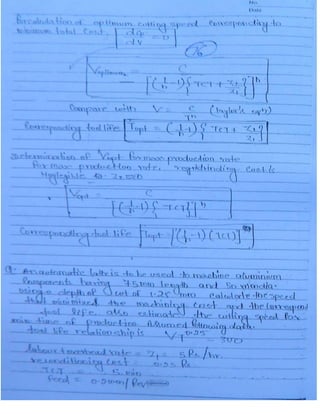 No
Date
calculation of optimum cutting speed corresponding to
minimum total cost. dCp/dV = 0
Voptimum = C / [(1/n - 1) { TCT + Z2/Z1 }]^n
Compare with V = C/T^n (Taylor's eqn)
Corresponding tool life Topt = (1/n - 1) { TCT + Z2/Z1 }
Determination of Vopt for max production rate
For max production rate, regrinding cost is
Negligible Z2 = 0
Vopt = C / [(1/n - 1) { TCT }]^n
Corresponding tool life Topt = (1/n - 1) (TCT)
Q. An automatic lathe is to be used to machine aluminium
components having 75mm length and 50 mm dia.
using a depth of cut of 1.25 mm calculate the speed
that minimised the machining cost and the correspond
tool life. also estimate the cutting speed for
min time of production Assumed following data.
tool life relationship is VT
Labour & overhead rate = Z1 = 5 Rs/hr.
reconditioning cost =
TCT = 5 min
feed = mm/Rev